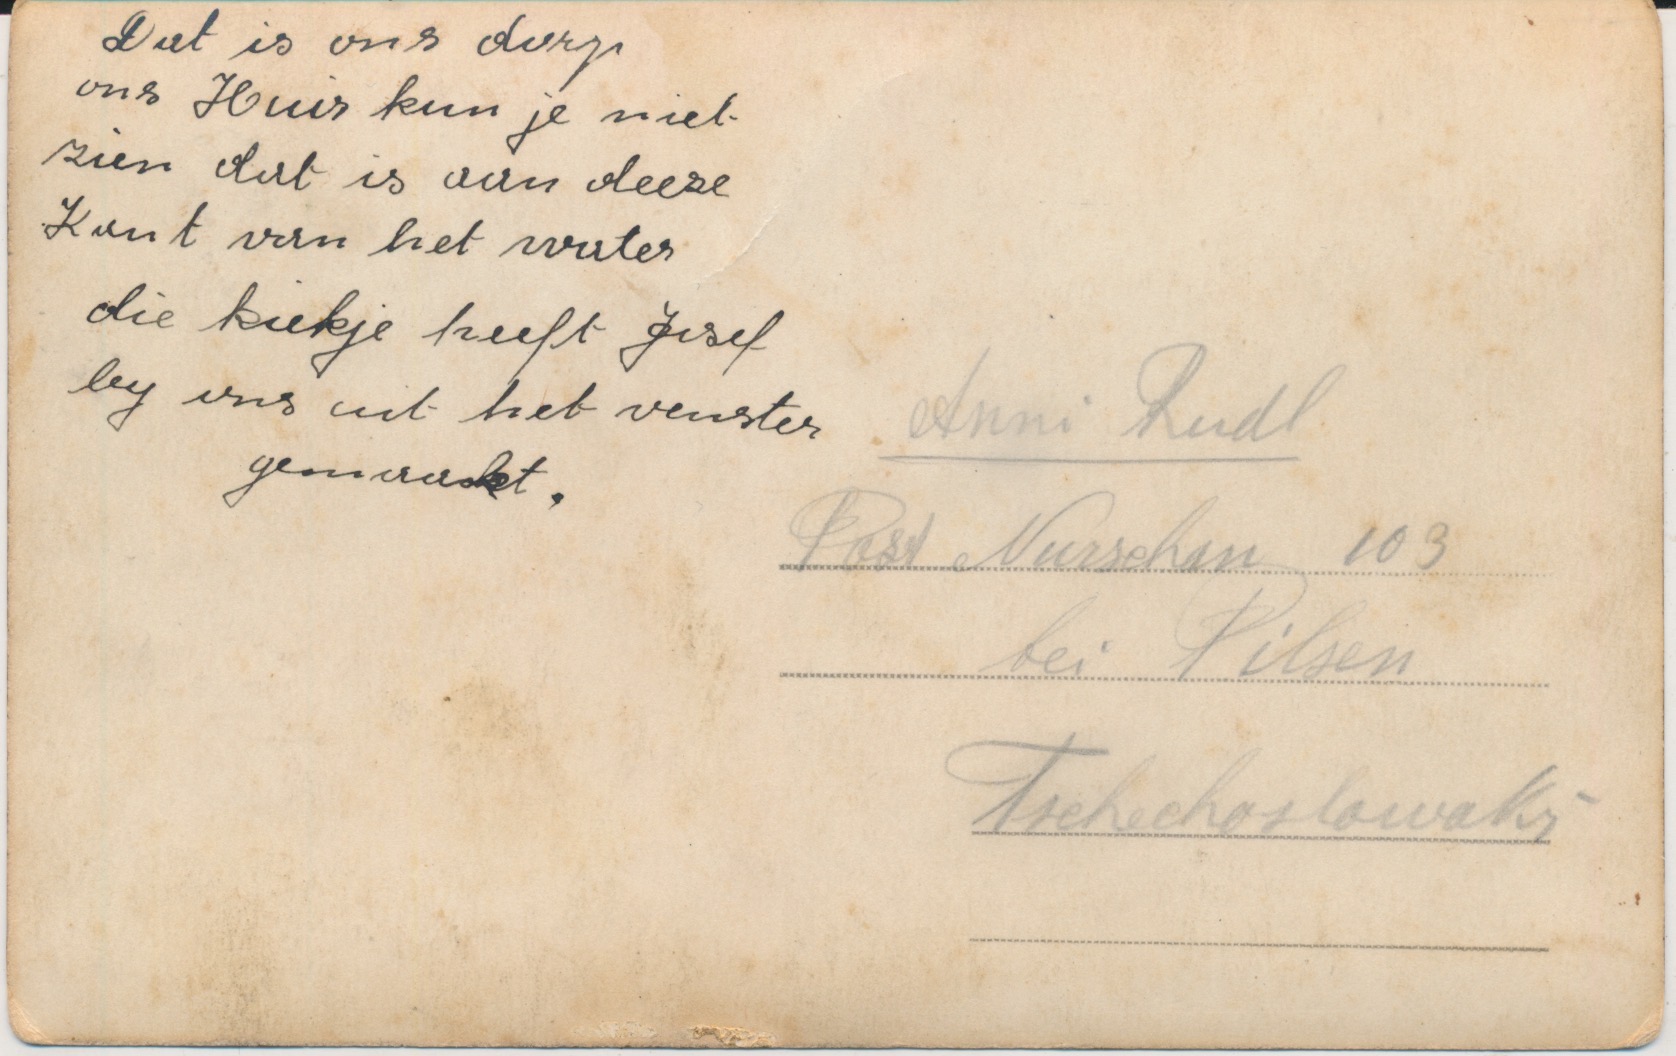 Dat is ons dorp
ons Huis kun je niet
zien dat is aan deeze
Kant van het water
die kiekje heeft Josef
by ons uit het venster
gemaakt.
Anni Rudl
Post Nurschan 103
bei Pilsen
Tschechoslowakj